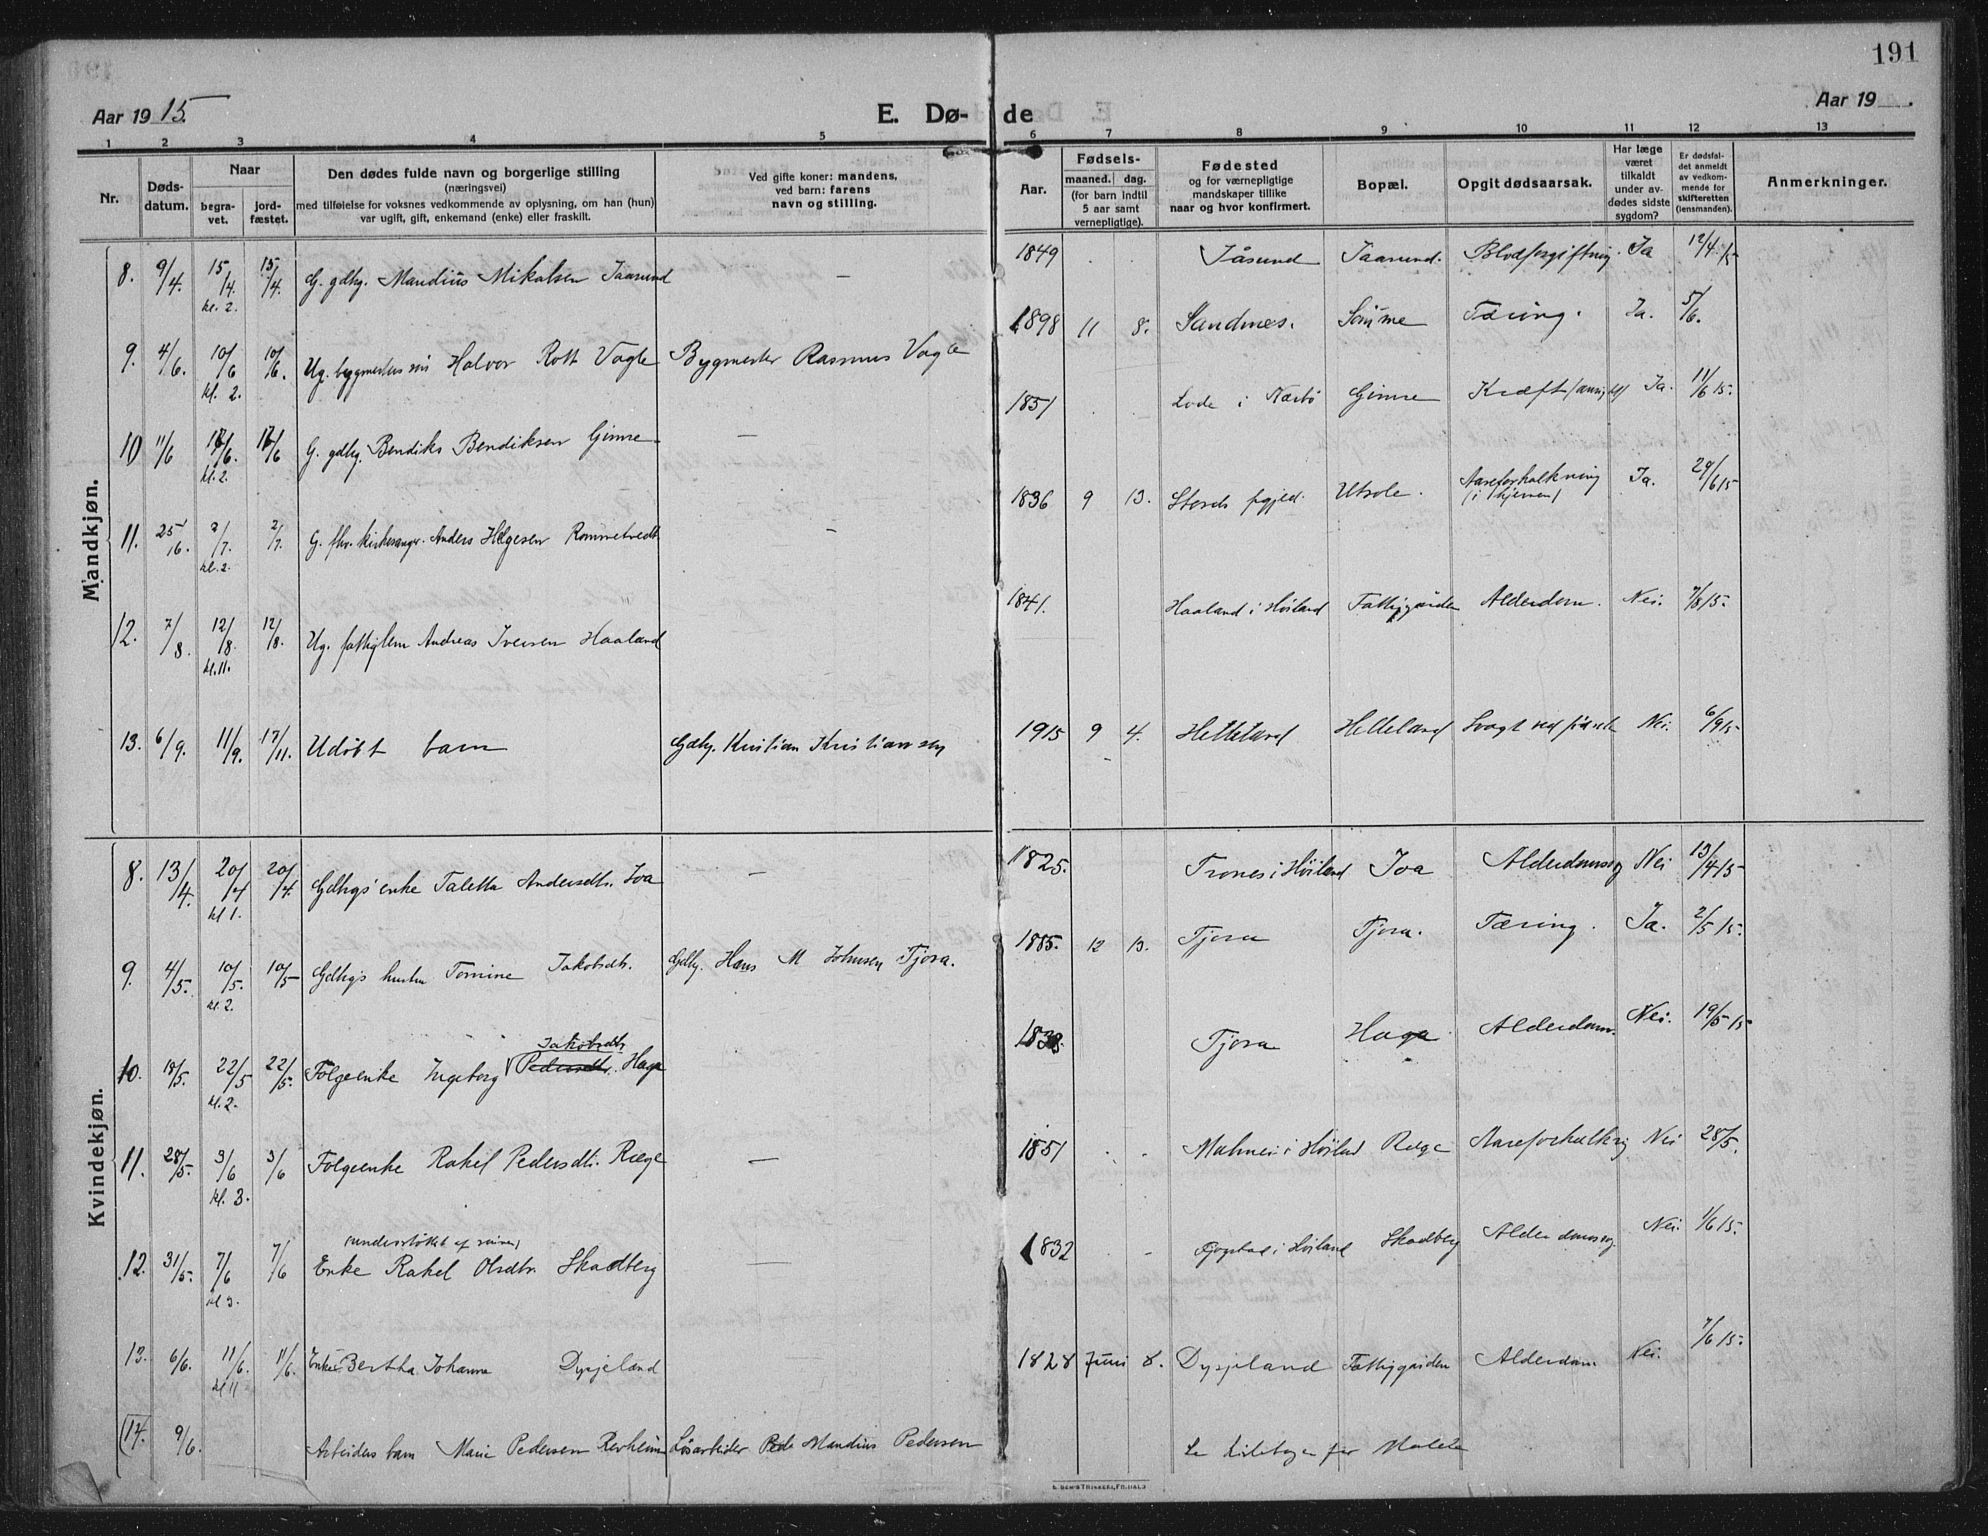 191
Aar 1915.
E. Dø-
de
Aar 19
1 2 3 4 5 6 7 8 9 10 11 12 13
Nr.
Døds-
datum.
Naar
begra-
vet.
jord-
fæstet.
Den dødes fulde navn og borgerlige stilling
(næringsvei)
med tilføielse for voksnes vedkommende av oplysning, om han (hun)
var ugift, gift, enkemand (enke) eller fraskilt.
Ved gifte koner: mandens,
ved barn: farens
navn og stilling.
Aar.
Fødsels-
maaned. dag.
(for barn indtil
5 aar samt
vernepligtige).
Fødested
og for værnepligtige
mandskaper tillike
naar og hvor konfirmert.
Bopæl.
Opgit dødsaarsak.
Har læge
været
tilkaldt
under av-
dødes sidste
sygdom?
Er dødsfal-
det anmeldt
av vedkom-
mende for
skifteretten
(lensmanden).
Anmerkninger.
Mandkjøn.
8. 9/4. 15/4. kl. 2. 15/4. G. gdbg. Mandius Mikalsen Jaasund — 1849 Jåsund Jaasund. Blodforgiftning. Ja 12/4 15
9. 4/6. 10/6 kl. 2. 10/6. Ug. bygmesters søn Halvor Rott Vagle Bygmester Rasmus Vagle 1898 11 8. Sandnes. Sømme Tæring. Ja. 5/6.
10 11/6 17/6. kl. 2. 17/6 G. gdbg. Bendiks Bendiksen Gimre — 1851 Lode i Nærbø Gimre Kræft Ja. 11/6 15.
11. 25/6. 2/7. kl. 2. 2/7. G. fhv. kirkesanger. Anders Helgesen Rommetvedt — 1836 9 13. Stords pgjeld. Utsole. Aareforkalkning (i hjernen) Ja. 29/6 15
12. 7/8. 12/8 kl. 11. 12/8. Ug. fattiglem Andreas Iversen Haaland 1841. Haaland i Høiland Fattiggården Alderdom. Nei. 7/8 15.
13. 6/9. 11/9. 17/11. Udøbt barn Gdbg. Kristian Kristiansen 1915 9 4. Helleland Helleland Svagt ved fødsel Nei. 6/9 15
Kvindekjøn.
8. 13/4. 20/4 kl 1. 20/4. Gdbgs enke Taletta Andersdtr. Joa — 1825. Trones i Høiland Joa Alderdomssvag Nei 13/4 15
9. 4/5. 10/5. kl. 2. 10/5 Gdbgs hustru Tomine Jakobsdtr. Gdbg. Hans M Johnsen Tjora. 1885. 12 13. Tjora Tjora. Tæring. Ja. 2/5 15.
10. 18/5. 22/5 kl. 2. 22/5. Følgeenke Ingeborg Pedersdtr. Jakobsdtr. Haga 1838. Tjora Haga Alderdom. Nei. 19/5 15
11. 28/5. 3/6 kl. 3. 3/6 Følgeenke Rakel Pedersdtr. Ræge — 1851 Malmei i Høiland Ræge Aareforkalkning Nei 28/5.
12. 31/5. 7/6 kl 3. 7/6 Enke Rakel Olsdtr. Skadberg (understøttet af) — 1832 i Høiland Skadberg Alderdomssvag. Nei. 1/6 15.
13. 6/6. 11/6. kl 11 11/6. Enke Bertha Johanna Dysjeland 1828 Juni 8. Dysjeland Fattiggården Alderdom Nei. 7/6 15.
(14.) 9/6. Arbeiders barn Marie Pedersen Revheim Løsarbeider Peder Mandius Pedersen Se kirkebogen for Malde